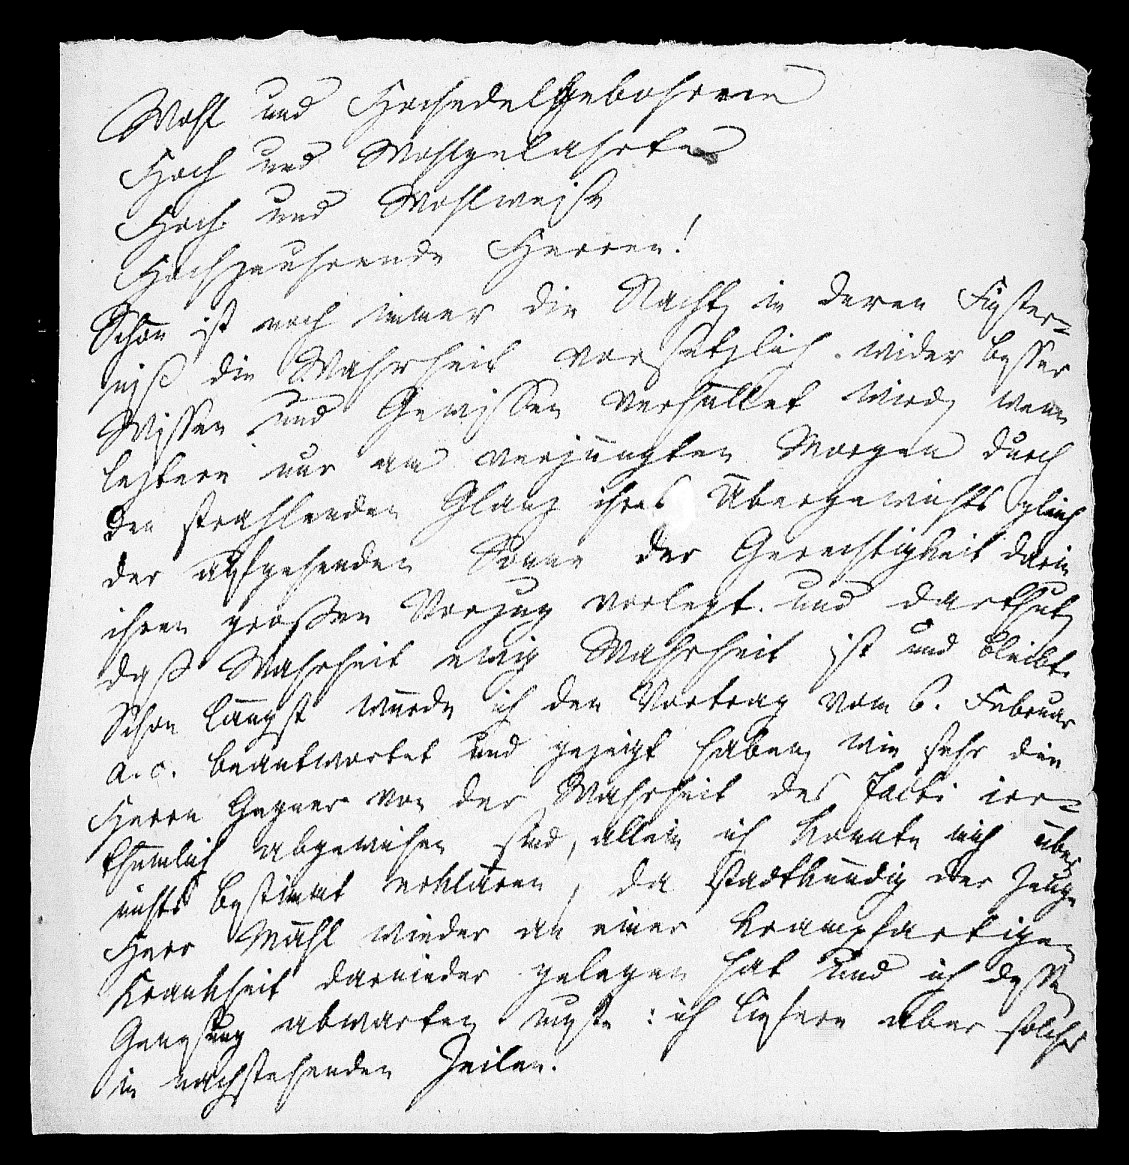 Wohl und HochedelGebohrne
Hoch und Wohlgelahrte
Hoch und Wohlweise
Hochzuehrende Herren!
Schön ist noch immer die Nacht, in deren Finster-
niß die Wahrheit vorsetzlich wider besser
Wissen und Gewissen verhüllet wird, wenn
leztere nur am verjüngten Morgen durch
den strahlenden Glanz ihres Übergewichts gleich
der aufgehenden Sonne der Gerechtigkeit darin
ihren großen Vorzug vorlegt und darthut,
daß Wahrheit ewig Wahrheit ist und bleibt.
Schon längst würde ich den Vortrag vom 6. Februar
a. c. beantwortet und gezeigt haben, wie sehr die
Herrn Gegner von der Wahrheit des facti irr-
thümlich abgewichen sind, allein ich konnte mich über
nichts bestimmt erklären, da stadtkundig der Zeuge
Herr Mühl wieder an einer krampfartigen
Krankheit darnieder gelegen hat und ich dessen
Genesung abwarten muste: ich liefere aber solche
in nachstehenden Zeilen.